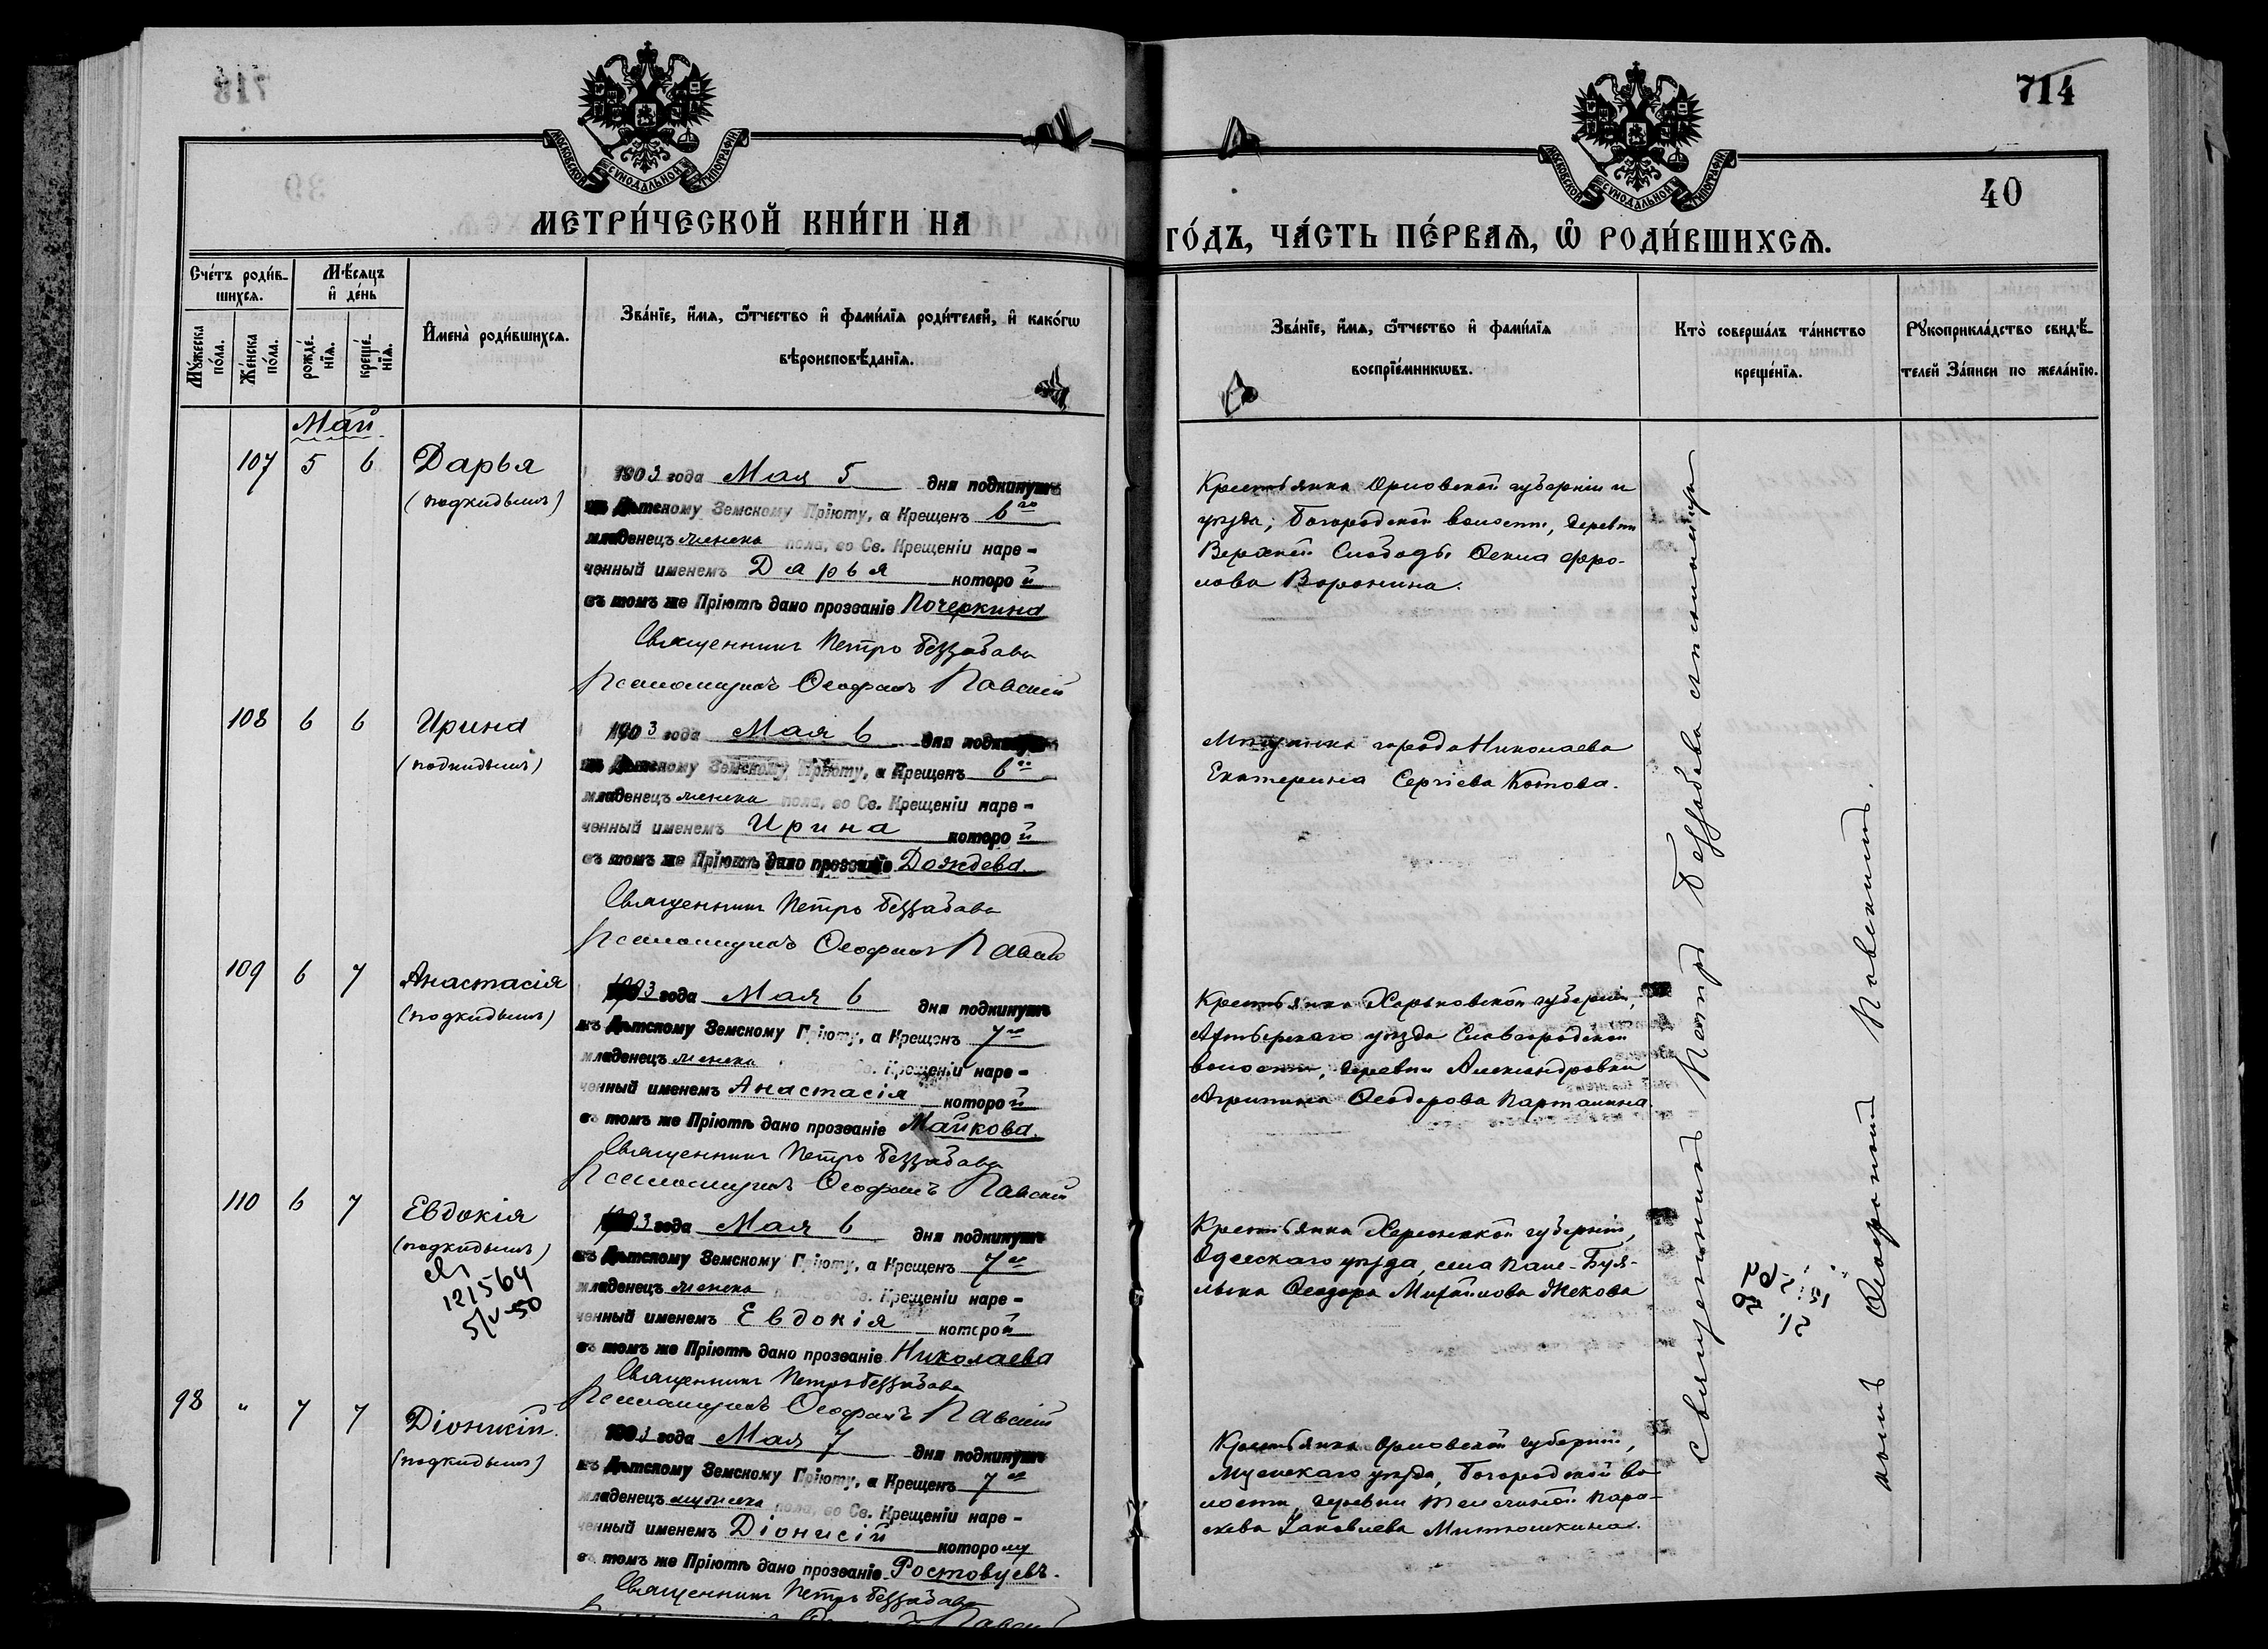 714
40
МОСКОВСКОЙ СѴНОДАЛЬНОЙ ТИПОГРАФІИ
МОСКОВСКОЙ СѴНОДАЛЬНОЙ ТИПОГРАФІИ
МЕТРИ́ЧЕСКОЙ КНИ́ГИ НА
ГО́ДЪ, ЧА́СТЬ ПЕ́РВАѦ, Ѡ РОДИ́ВШИХСѦ.
Сче́тъ роди́в-
шихся.
Му́жеска по́ла.
Же́нска по́ла.
Мѣ́сяцъ
и҆ де́нь
рожде́-
нїѧ.
креще́-
нїѧ.
И҆мена̀ роди́вшихсѧ.
Зва́нїе, и҆́мѧ, ѻ҆́тчество и҆ фами́лїѧ роди́телей, и҆ како́гѡ
вѣроисповѣ́данїѧ.
Зва́нїе, и҆́мѧ, ѻ҆́тчество и҆ фами́лїѧ
воспрїе́мникѡвъ.
Кто̀ соверша́лъ та́инство
креще́нїѧ.
Рꙋкоприкла́дство свидѣ́-
телей За́писи по жела́нїю.
Май
107 5 6 Дарья
(подкидышъ)
1903 года Мая 5 дня подкинутъ
къ Дѣтскому Земскому Пріюту, а Крещенъ 6го
младенецъ женска пола, во Св. Крещеніи наре-
ченный именемъ Дарья которой
въ томъ же Пріютѣ дано прозваніе Почеркина
Священникъ Петръ Беззабава
Псаломщикъ Ѳеофанъ Павскій
Крестьянка Орловской губерніи и
уѣзда, Богородской волости, деревни
Верхней Слободы Ѳекла Фро-
лова Воронина.
108 6 6 Ирина
(подкидышъ)
1903 года Мая 6 дня подкинутъ
къ Дѣтскому Земскому Пріюту, а Крещенъ 6го
младенецъ женска пола, во Св. Крещеніи наре-
ченный именемъ Ирина которой
въ томъ же Пріютѣ дано прозваніе Дождева.
Священникъ Петръ Беззабава
Псаломщикъ Ѳеофанъ Павскій
Мѣщанка города Николаева
Екатерина Сергіева Котова.
109 6 7 Анастасія
(подкидышъ)
1903 года Мая 6 дня подкинутъ
къ Дѣтскому Земскому Пріюту, а Крещенъ 7го
младенецъ женска Св. Крещеніи наре-
ченный именемъ Анастасія которой
въ томъ же Пріютѣ дано прозваніе Майкова.
Священникъ Петръ Беззабава
Псаломщикъ Ѳеофанъ Павскій
Крестьянка Харьковской губерніи,
уѣзда Славгородской
волости, деревни Александровки
Агрипина Ѳеодорова
110 6 7 Евдокія
(подкидышъ)
121564
5/V-50
1903 года Мая 6 дня подкинутъ
къ Дѣтскому Земскому Пріюту, а Крещенъ 7го
младенецъ женска пола, во Св. Крещеніи наре-
ченный именемъ Евдокія которой
въ томъ же Пріютѣ дано прозваніе Николаева
Священникъ Петръ Беззабава
Псаломщикъ Ѳеофанъ Павскій
Крестьянка Херсонской губерніи,
Одесскаго уѣзда, села
Ѳеодора Михайлова
98 " 7 7 Діонисій.
(подкидышъ)
1903 года Мая 7 дня подкинутъ
къ Дѣтскому Земскому Пріюту, а Крещенъ 7го
младенецъ мужеска пола, во Св. Крещеніи наре-
ченный именемъ Діонисій которому
въ томъ же Пріютѣ дано прозваніе Ростовцевъ.
Священникъ Петръ Беззабава
Крестьянка Орловской губерніи,
уѣзда, Богородской во-
лости, деревни Пара-
скева Іаковлева Митюшкина.
Священникъ Петръ Беззабава съ псаломщи-
комъ Ѳеофаномъ Павскимъ.